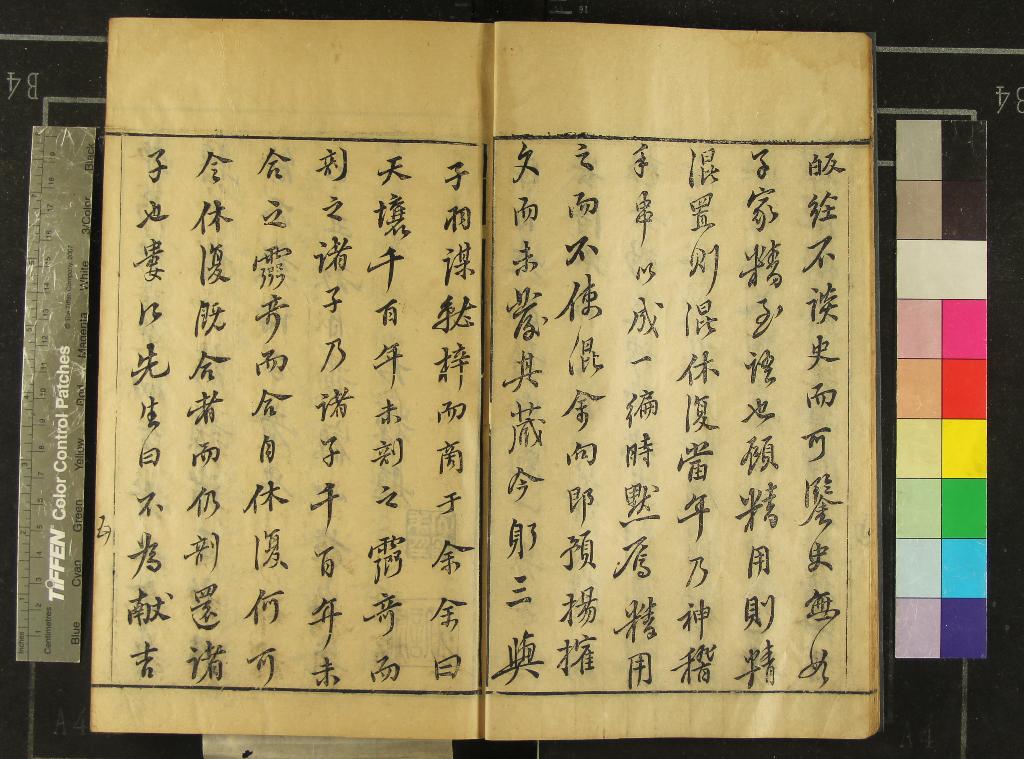 皈經不談史而可鑒史無如
子家精至語也顧精用則精
混置則混休復當年乃神稽
手串以成一編時默焉精用
之而不使混余向即預揚搉
文而未發其藏今躬三與
子羽謀鋟梓而商于余余曰
天壤千百年未剖之靈竒而
剖之諸子乃諸子千百年未
合之靈竒而合自休復何可
令休復既合者而仍剖還諸
子也婁江先生曰不為獻吉
五
B4
B4
A4
A4
TIFFEN Color Control Patches
© The Tiffen Company, 2007
Inches
Centimetres
Blue
Cyan
Green
Yellow
Red
Magenta
White
3/Color
Black